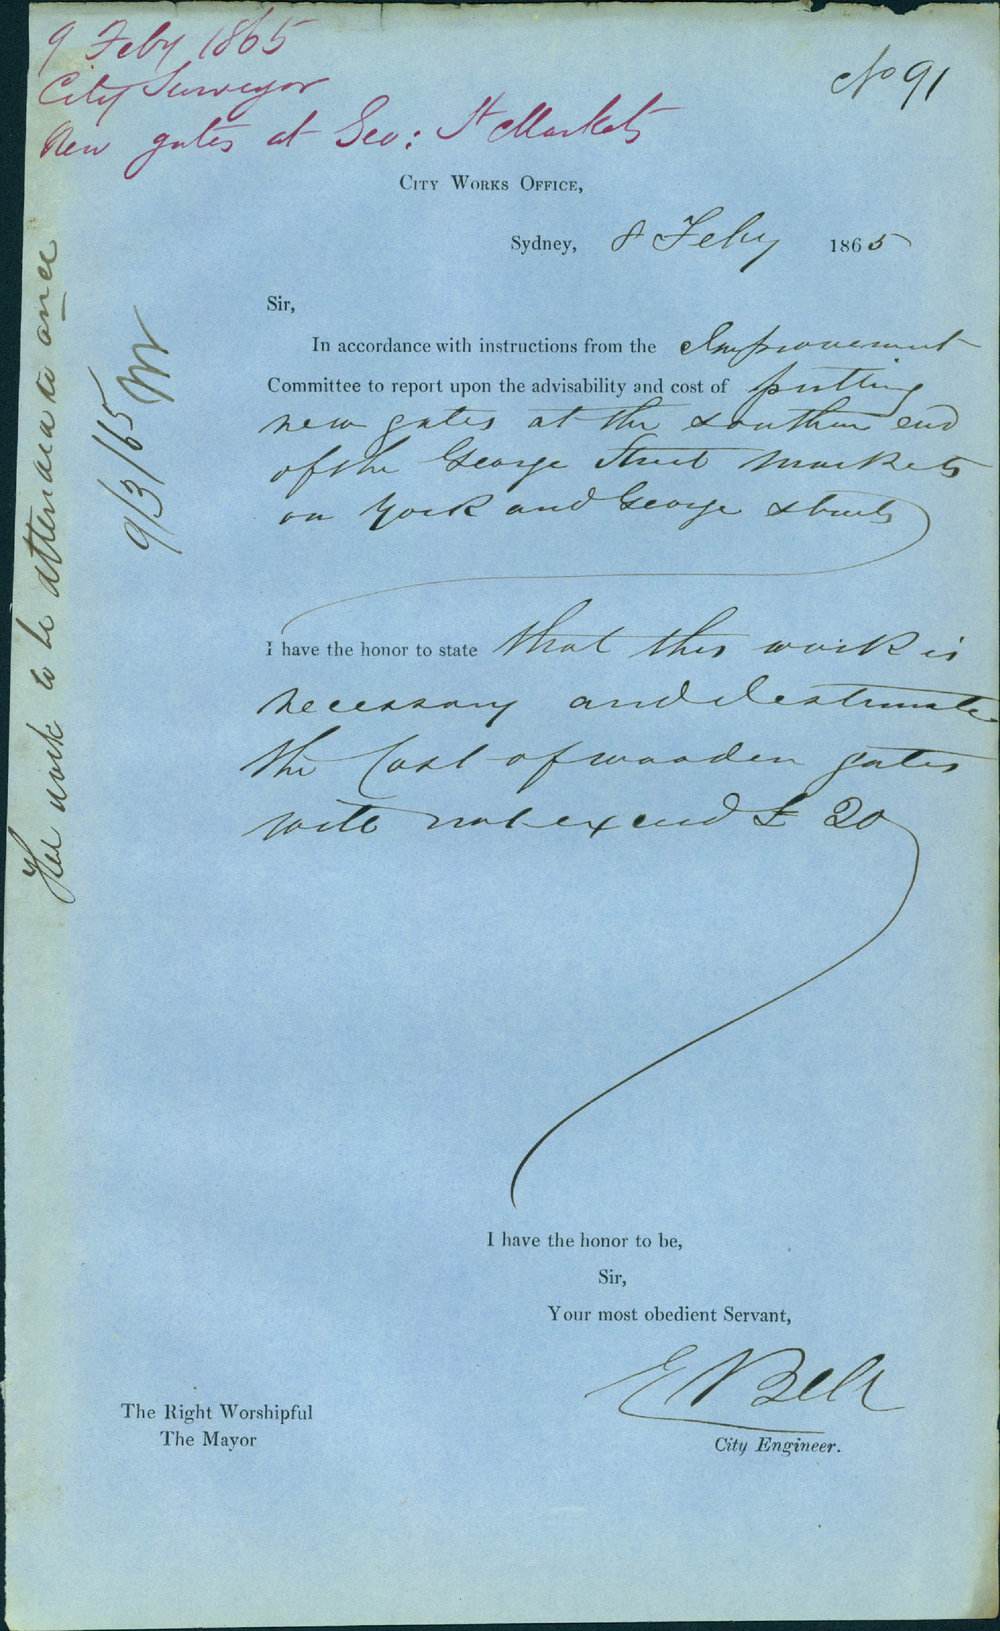 9 Feby 1865
City Surveyor
New gates at Geo: St Markets
No 91
City Works Office,
Sydney, 8 Feby 1865
Sir,
In accordance with instructions from the Improvement
Committee to report upon the advisability and cost of putting
new gates at the southern end
of the George Street Markets
on York and George streets
I have the honor to state that this work is
necessary and I estimate
the Cost of wooden gates
will not exceed £ 20
I have the honor to be,
Sir,
Your most obedient Servant,
E Bell
City Engineer.
The Right Worshipful
The Mayor
The work to be attended to at once
9/3/65